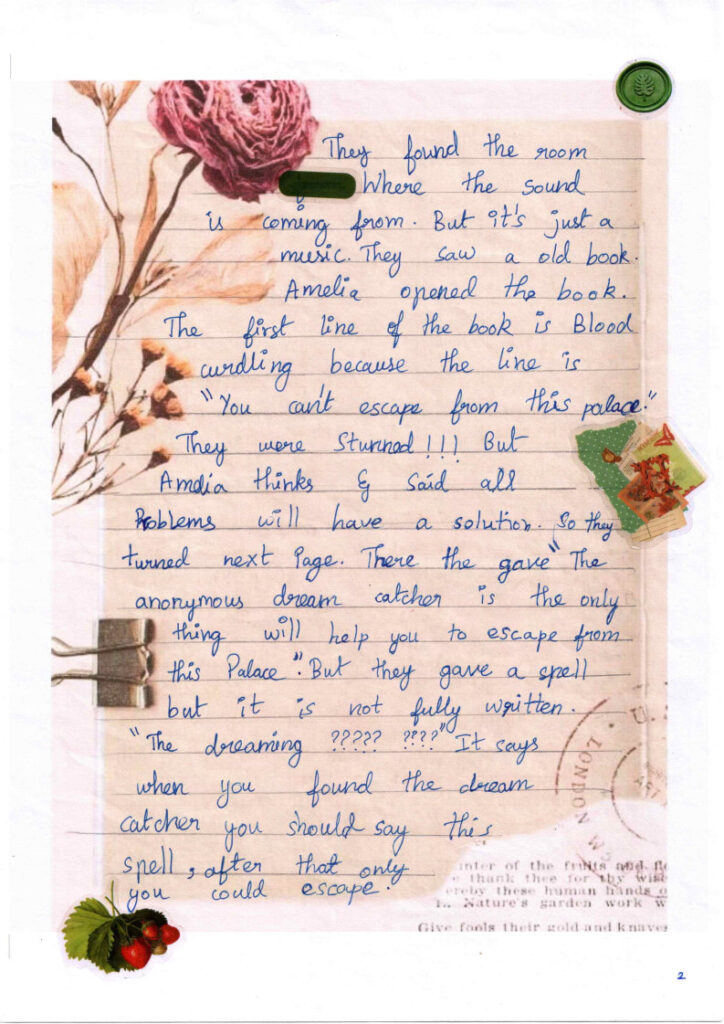 They found the room
Where the sound
is coming from. But it's just a
music. They saw a old book.
Amelia opened the book.
The first line of the book is Blood
curdling because the line is
"You can't escape from this palace."
They were Stunned!!! But
Amelia thinks & Said all
Problems will have a solution. So they
turned next Page. There the gave "The
anonymous dream catcher is the only
thing will help you to escape from
this Palace". But they gave a spell
but it is not fully written.
"The dreaming ????? ????" It says
when you found the dream
catcher you should say this
spell, after that only
you could escape.
LONDON
inter of the fruits and
thank thee for thy wise
ereby these human hands o
In Nature's garden work w
Give fools their gold and knaves
2